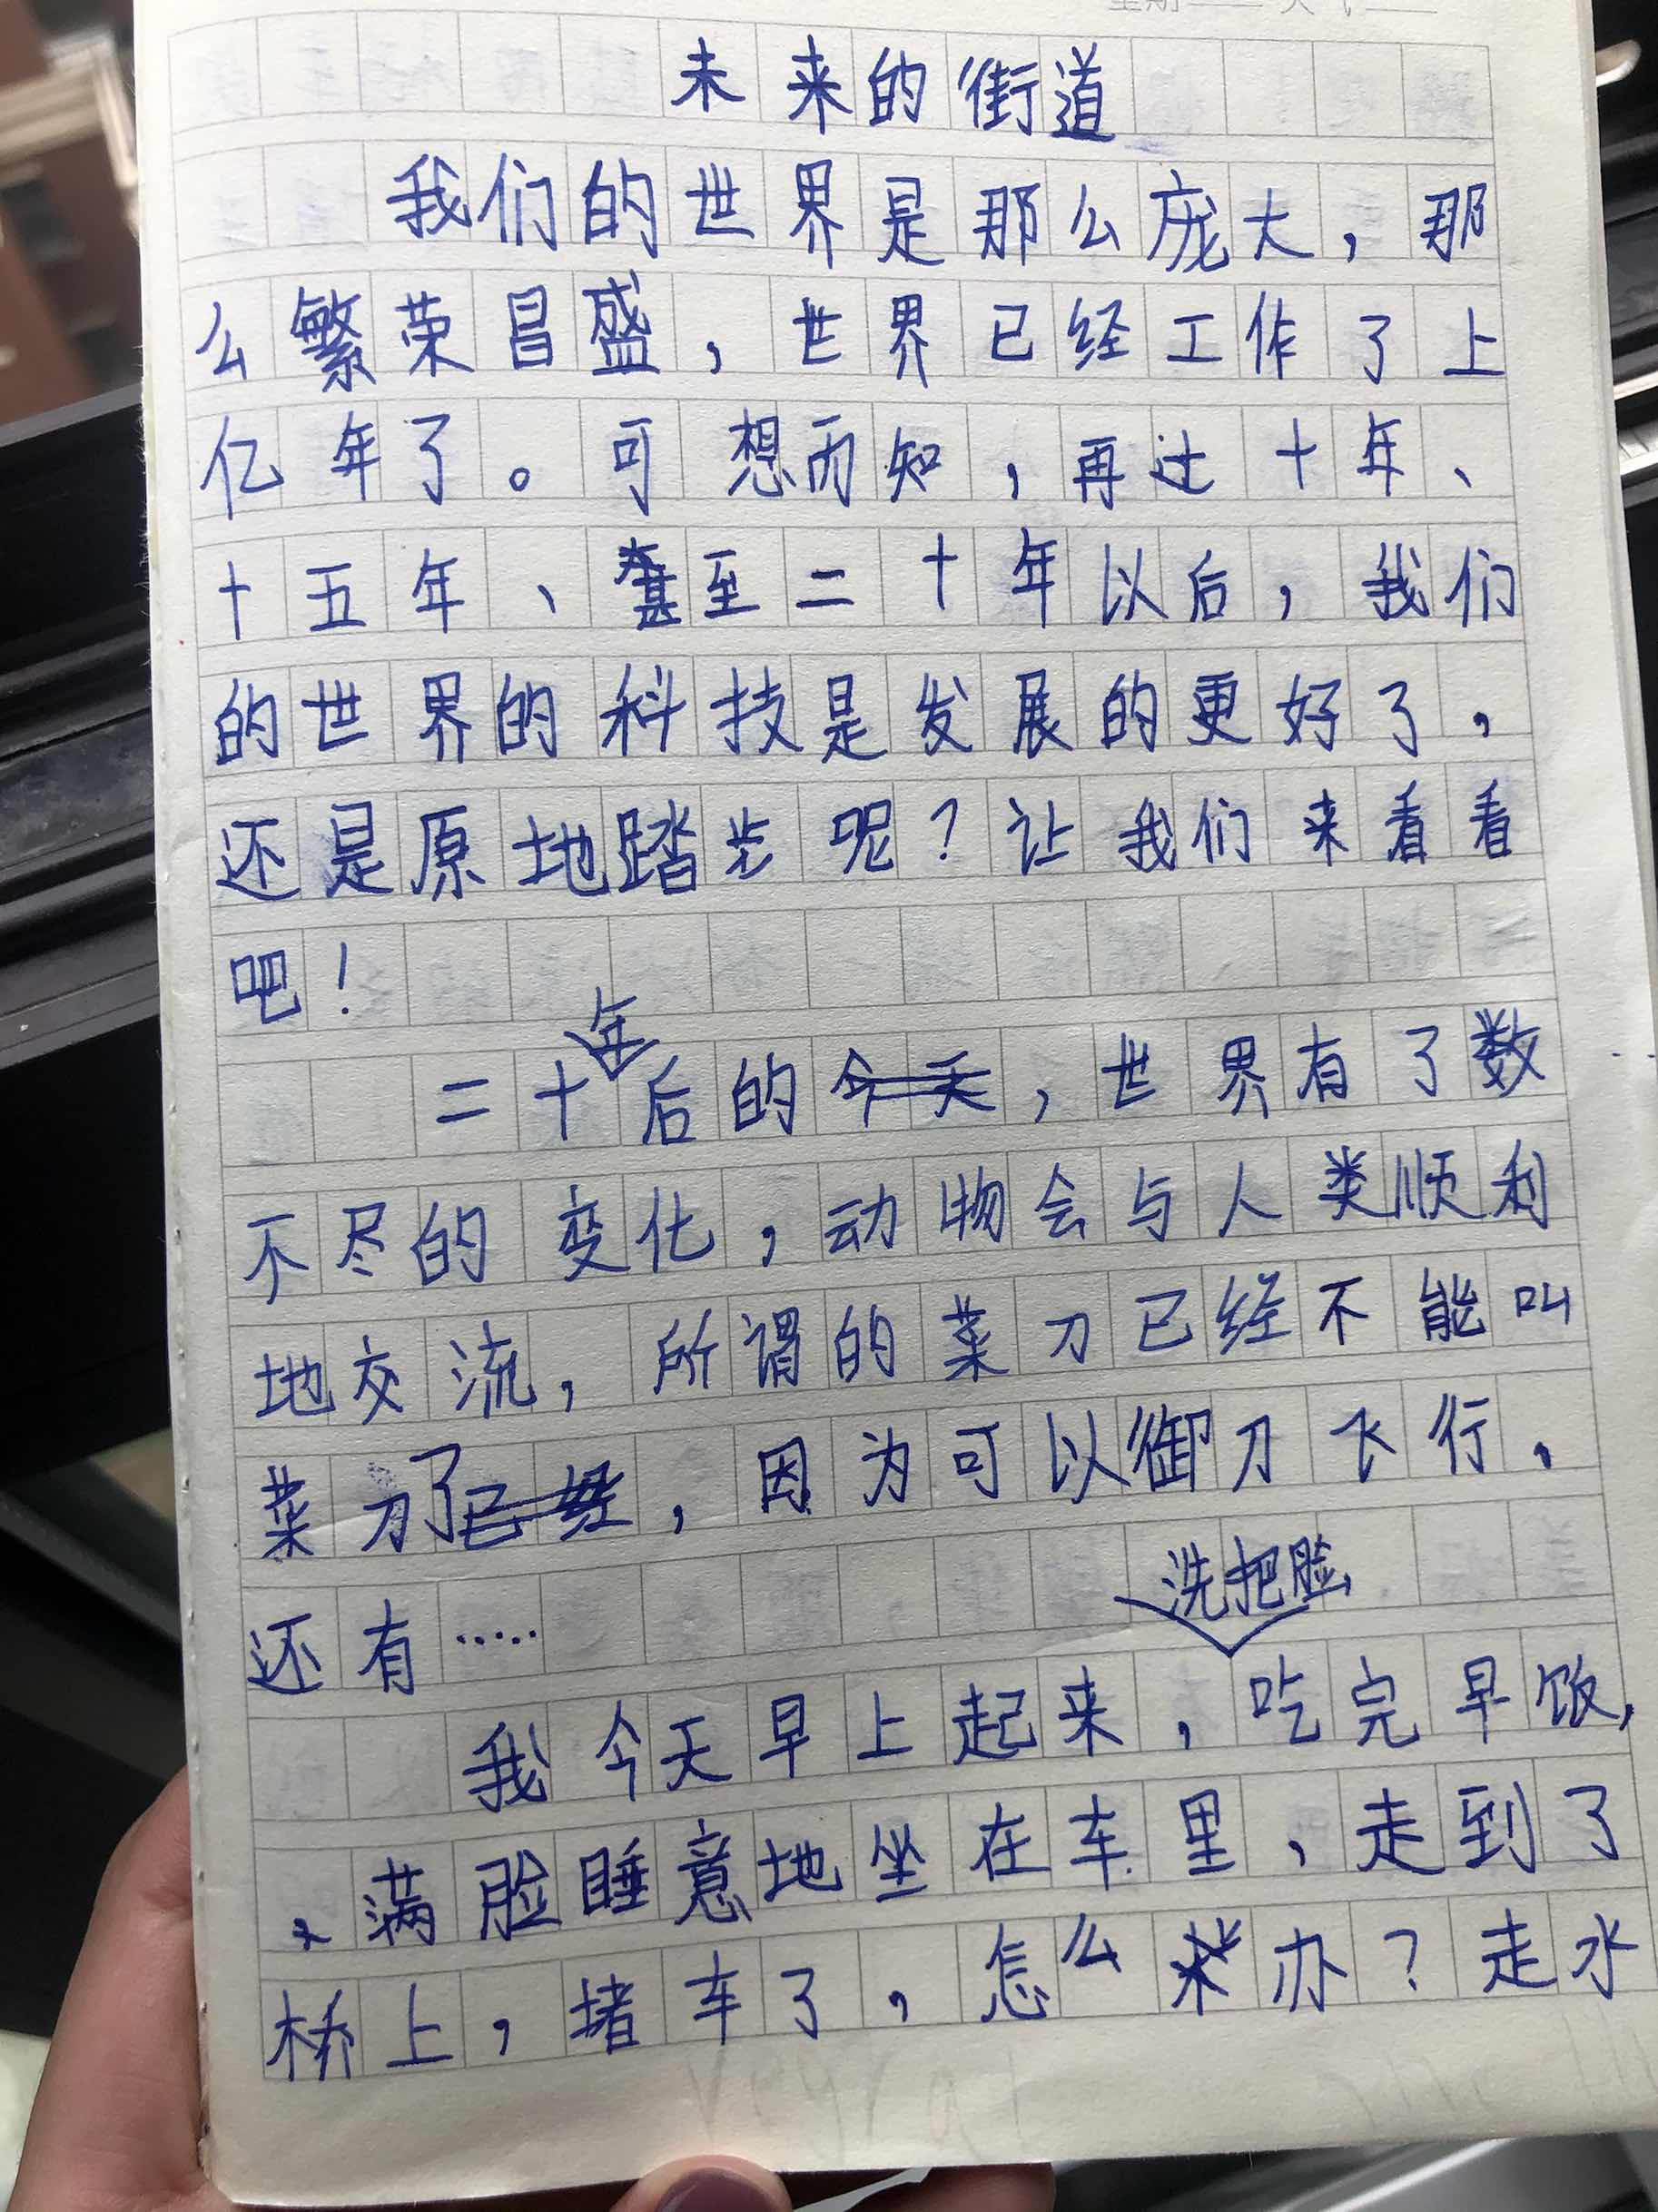 未来的街道
我们的世界是那么庞大，那
么繁荣昌盛，世界已经工作了上
亿年了。可想而知，再过十年、
十五年、甚至二十年以后，我们
的世界的科技是发展的更好了，
还是原地踏步呢？让我们来看看
吧！
二十年后的今天，世界有了数
不尽的变化，动物会与人类顺利
地交流，所谓的菜刀已经不能叫
菜刀了已经，因为可以御刀飞行，
还有……
洗把脸，
我今天早上起来，吃完早饭，
满脸睡意地坐在车里，走到了
桥上，堵车了，怎么办？走水